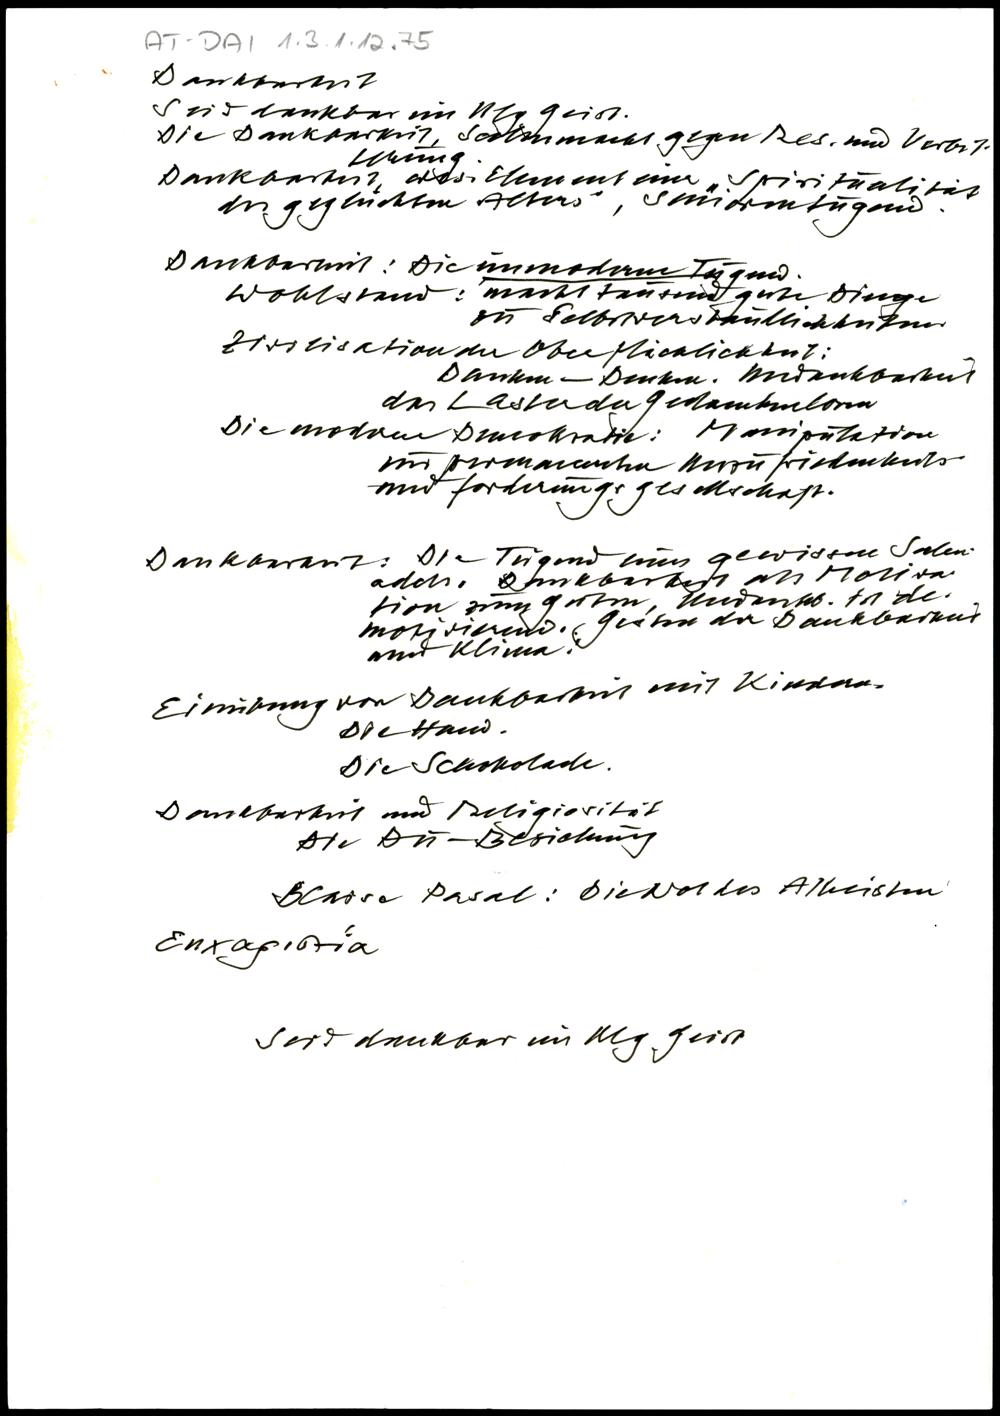 AT-DAI 1.3.1.12.75
Dankbarkeit
Seid dankbar im Hlg Geist.
Die Dankbarkeit, gegen Res. und Verbit-
terung.
Dankbarkeit, Element einer "Spiritualität
des geglückten Alters", Seniorentugend.
Dankbarkeit: Die unmoderne Tugend.
Wohlstand: macht tausend gute Dinge
zu Selbstverständlichkeiten
Zivilisation der Oberflächlichkeit:
Danken – Denken. Undankbarkeit
das Laster der Gedankenlosen
Die moderne Demokratie: Manipulation
zur permanenten Unzufriedenheits-
und forderungsgesellschaft.
Dankbarkeit: Die Tugend eines gewissen Seelen-
adels. Dankbarkeit als Motiva-
tion zum guten, Undankb. ist de-
motivierend. Gesten der Dankbarkeit
und Klima.
Einübung von Dankbarkeit mit Kindern.
Die Hand.
Die Schokolade.
Dankbarkeit und Religiosität
Die Du-Beziehung
Blaise Pasal: Die Not des Atheisten
Ευχαριστία
Seid dankbar im Hlg Geist